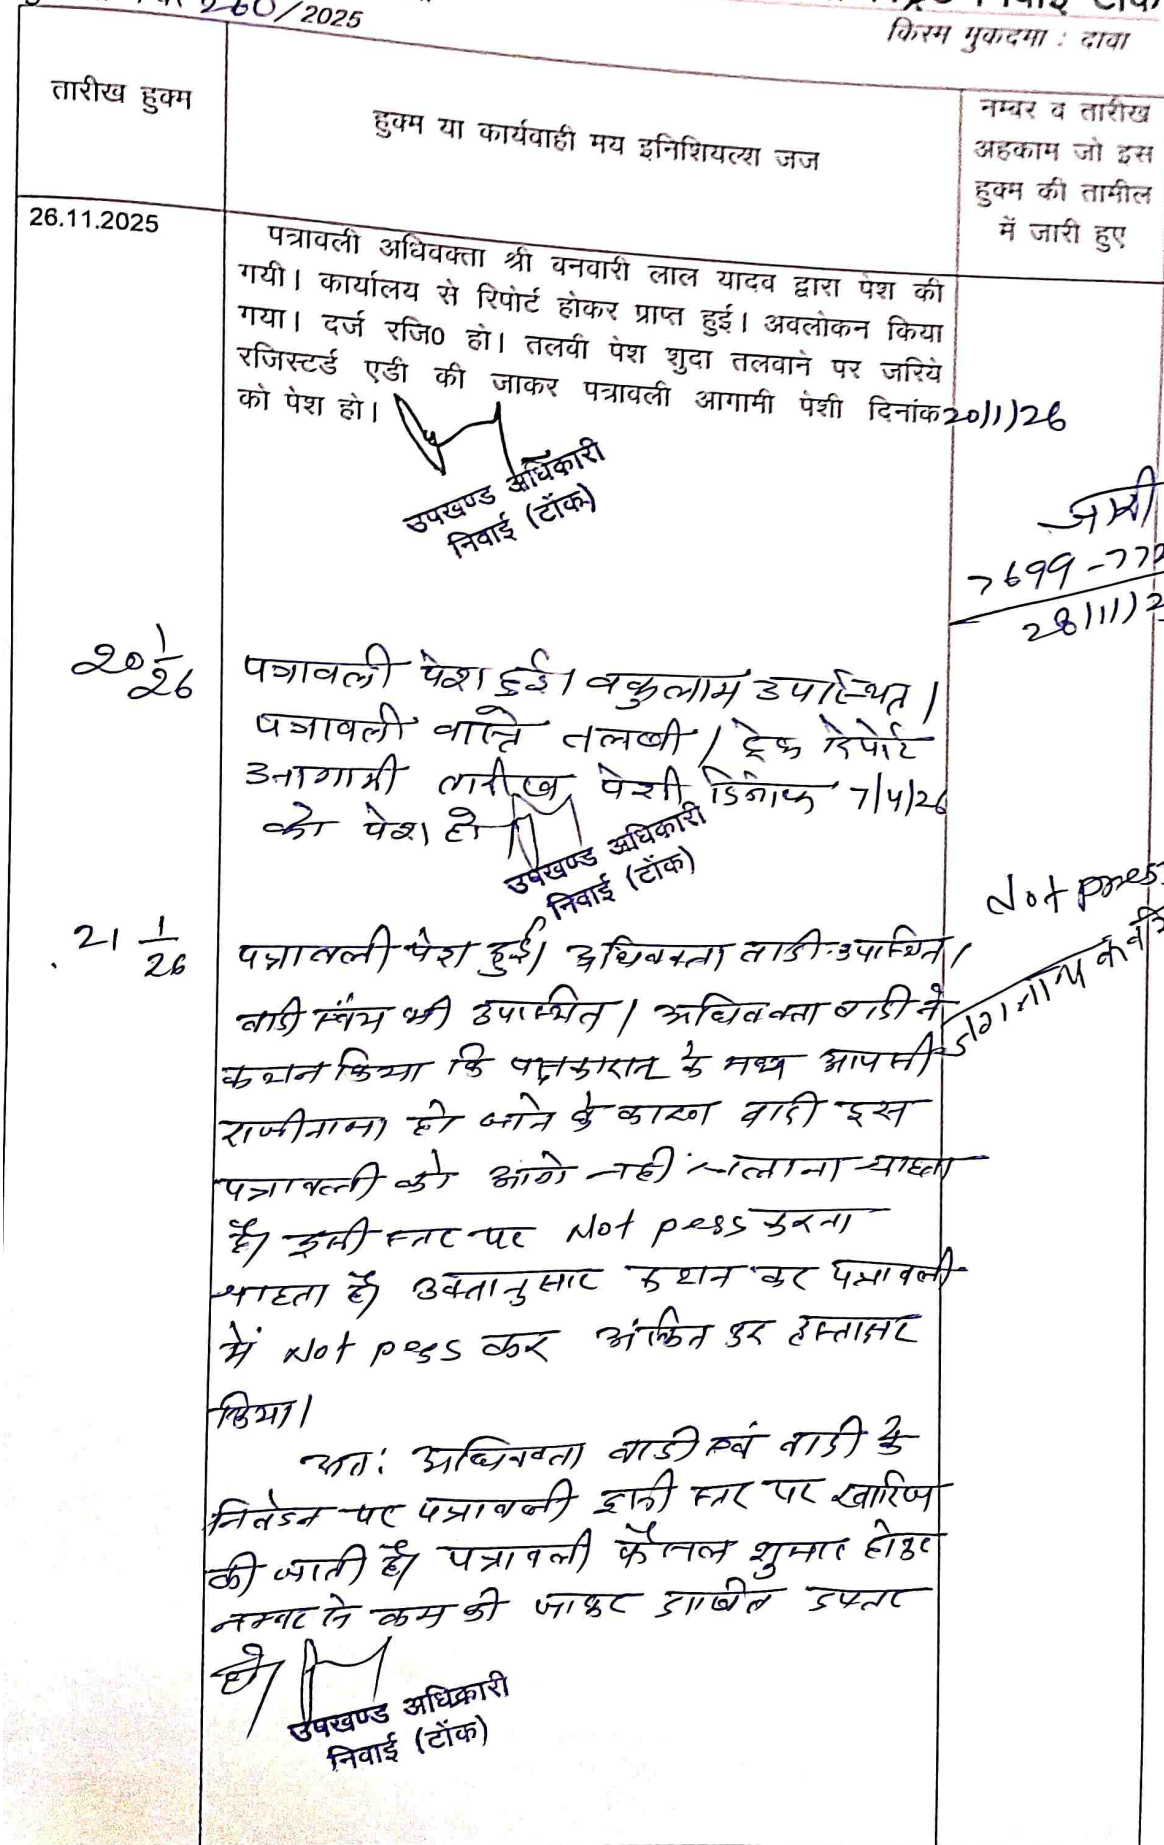 260/2025
किस्म मुकदमा : दावा
तारीख हुक्म
हुक्म या कार्यवाही मय इनिशियल्श जज
नम्बर व तारीख
अहकाम जो इस
हुक्म की तामील
में जारी हुए
26.11.2025
पत्रावली अधिवक्ता श्री बनवारी लाल यादव द्वारा पेश की
गयी। कार्यालय से रिपोर्ट होकर प्राप्त हुई। अवलोकन किया
गया। दर्ज रजि0 हो। तलवी पेश शुदा तलवाने पर जरिये
रजिस्टर्ड एडी की जाकर पत्रावली आगामी पेशी दिनांक 20/1/26
को पेश हो।
उपखण्ड अधिकारी
निवाई (टोंक)
7699-77
28/11/2
20 1/26
पत्रावली पेश हुई। वकुलाम उपस्थित।
पत्रावली वास्ते तलबी / ट्रेक रिपोर्ट
आगामी तारीख पेशी दिनांक 7/4/26
को पेश हो
उपखण्ड अधिकारी
निवाई (टोंक)
Not press
21 1/26
पत्रावली पेश हुई। अधिवक्ता वादी उपस्थित।
वादी स्वंय भी उपस्थित। अधिवक्ता वादी ने
कथन किया कि पक्षकारान के मध्य आपसी
राजीनामा हो जाने के कारण वादी इस
पत्रावली को आगे नही चलाना चाहता
है। इसी स्तर पर Not pess करना
चाहता है। उक्तानुसार कथन कर पत्रावली
में Not pess कर अंकित कर हस्ताक्षर
किया।
अतः अधिवक्ता वादी एवं वादी के
निवेदन पर पत्रावली इसी स्तर पर खारिज
की जाती है। पत्रावली फैसल शुमार होकर
नम्बर से कम की जाकर दाखिल दफ्तर
हो।
उपखण्ड अधिकारी
निवाई (टोंक)